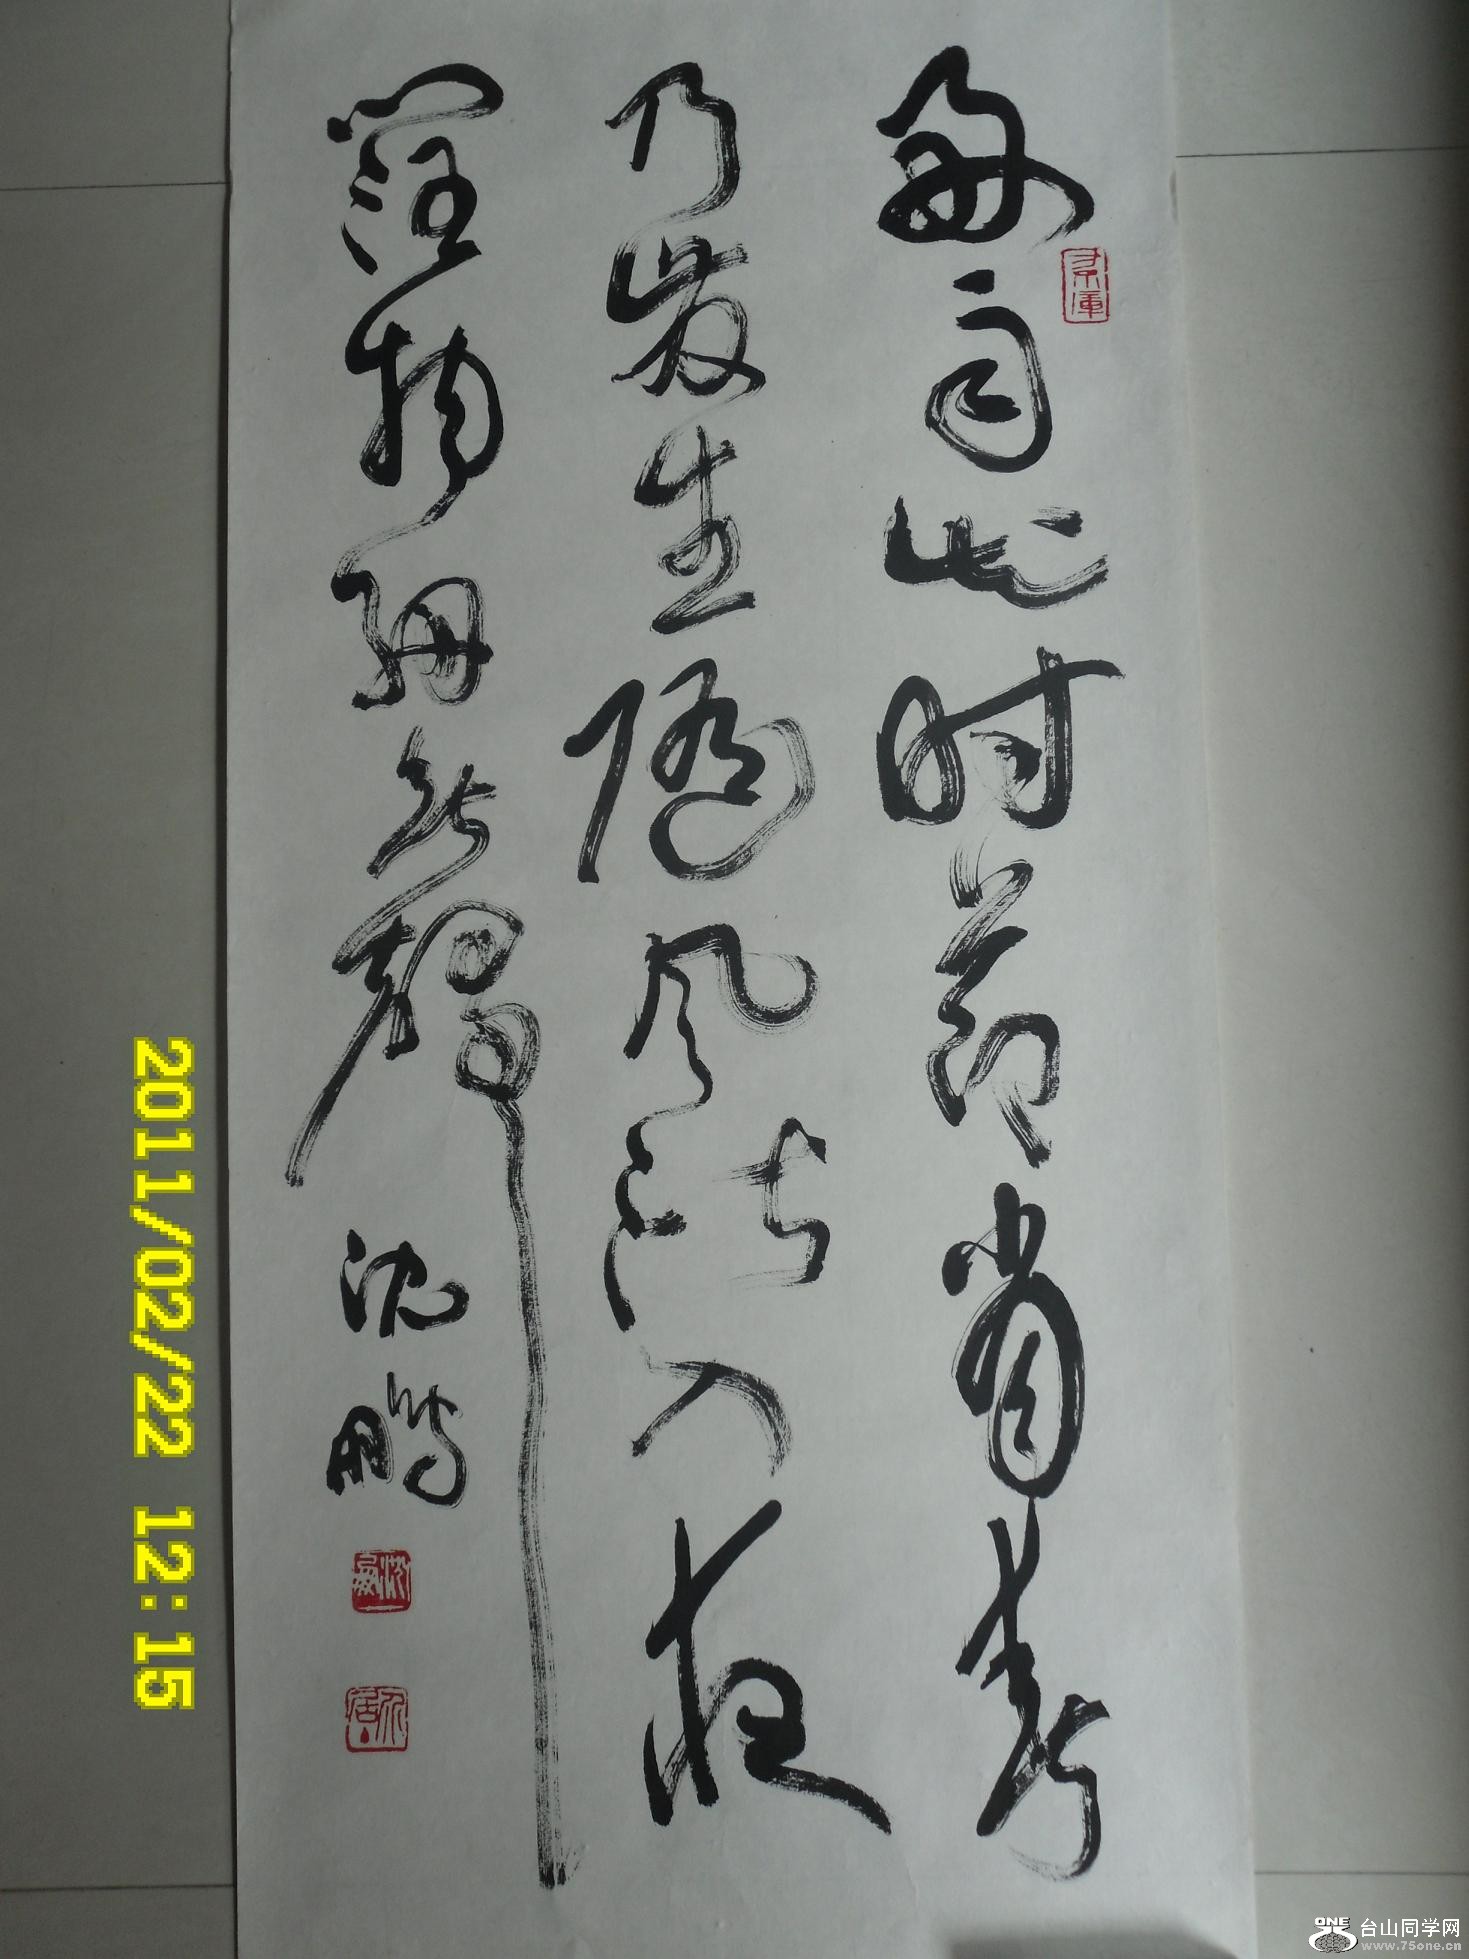 好雨知时节当春
乃发生随风潜入夜
润物细无声
沈鹏
2011/02/22 12:15
ONE 台山同学网
www.75one.cn